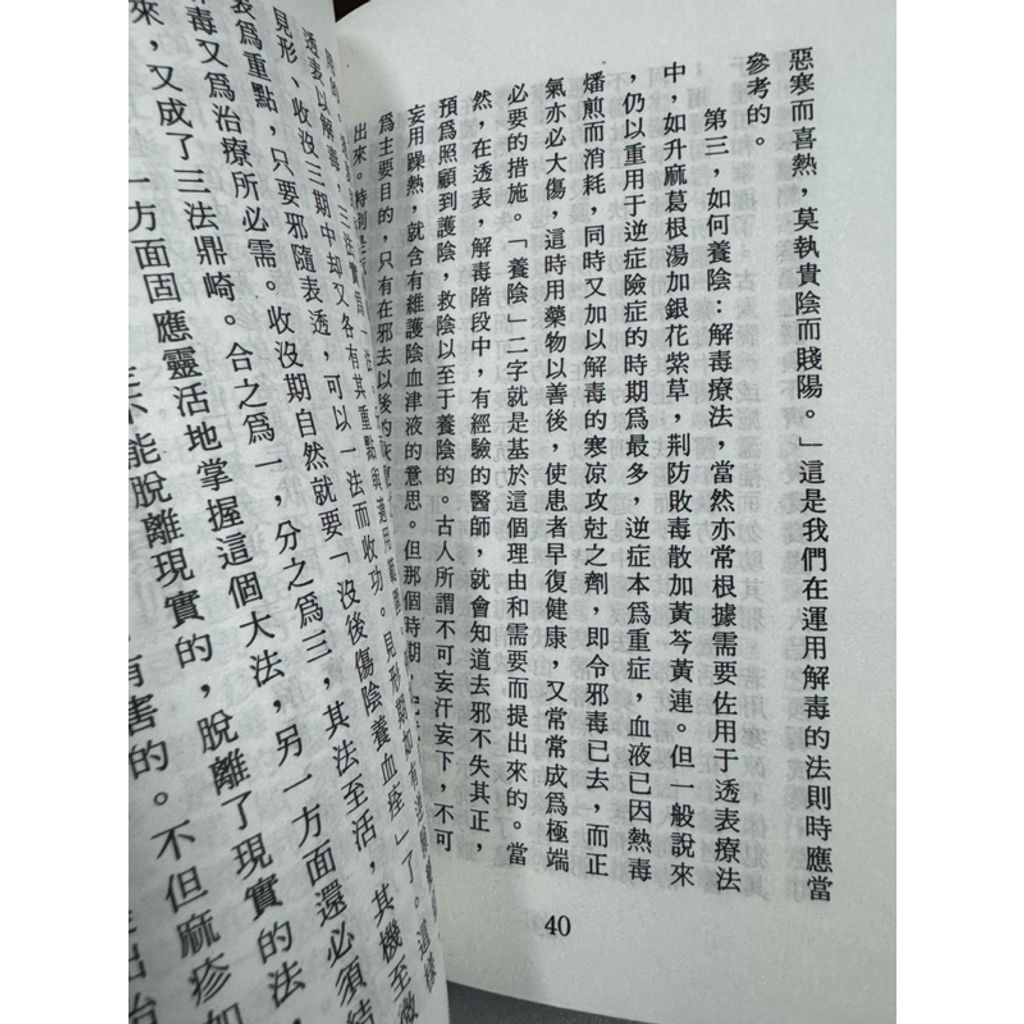 惡寒而喜熱，莫執貴陰而賤陽。」這是我們在運用解毒的法則時應當
參考的。
第三，如何養陰：解毒療法，當然亦常根據需要佐用于透表療法
中，如升麻葛根湯加銀花紫草，荆防敗毒散加黃芩黃連。但一般說來
，仍以重用于逆症險症的時期爲最多，逆症本爲重症，血液已因熱毒
燔煎而消耗，同時又加以解毒的寒凉攻尅之劑，即令邪毒已去，而正
氣亦必大傷，這時用藥物以善後，使患者早復健康，又常常成爲極端
必要的措施。「養陰」二字就是基於這個理由和需要而提出來的。當
然，在透表，解毒階段中，有經驗的醫師，就會知道去邪不失其正，
預爲照顧到護陰，救陰以至于養陰的。古人所謂不可妄汗妄下，不可
妄用躁熱，就含有維護陰血津液的意思。但那個時期
爲主要目的，只有在邪去以後的
出來。特别是
40
透表以解毒，三法實爲一法。
見形、收沒三期中却又各有其重點與適用範圍。見形期如有
表爲重點，只要邪隨表透，可以一法而收功。
解毒又爲治療所必需。收沒期自然就要「沒後傷陰養血痊」了。這樣
來，又成了三法鼎崎。合之爲一，分之爲三，其法至活，其機至微
一方面固應靈活地掌握這個大法，另一方面還必須結
能脫離現實的，脫離了現實的法，
有害的。不但麻疹如